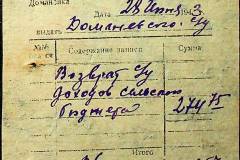 Доманевка
Дата 28 Июня 1943
выдать Доманевского с/у
№№ Содержание записи Сумма
Возврат с/у
доходов сельского
бюджета 274 75
Итого